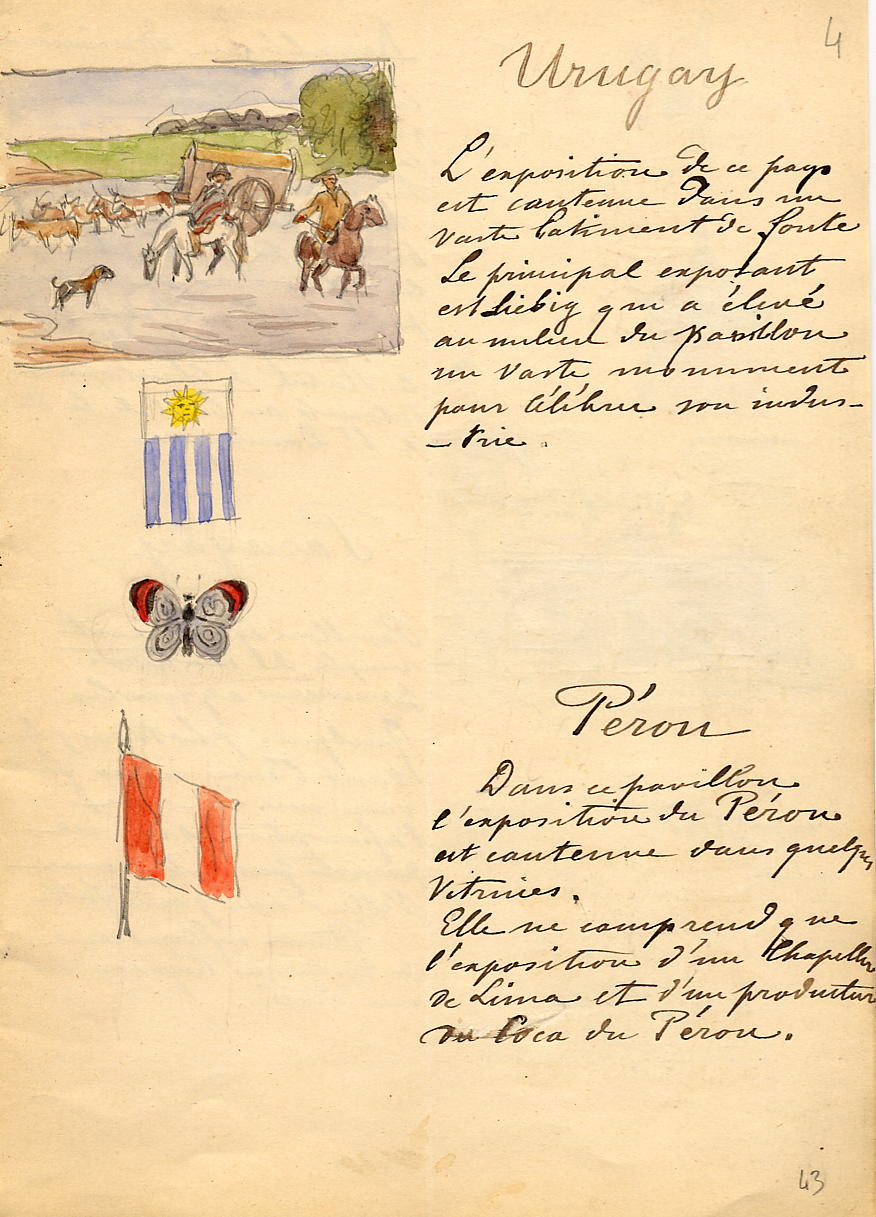 4
Urugay
L'exposition de ce pays
est contenue dans un
vaste batiment de fonte
Le principal exposant
est Liebig qui a élevé
au milieu du pavillon
un vaste monument
pour célébrer son indus-
-trie.
Pérou
Dans ce pavillon
l'exposition du Pérou
est contenue dans quelques
vitrines.
Elle ne comprend que
l'exposition d'un Chapelier
de Lima et d'un producteur
du Coca du Pérou.
43